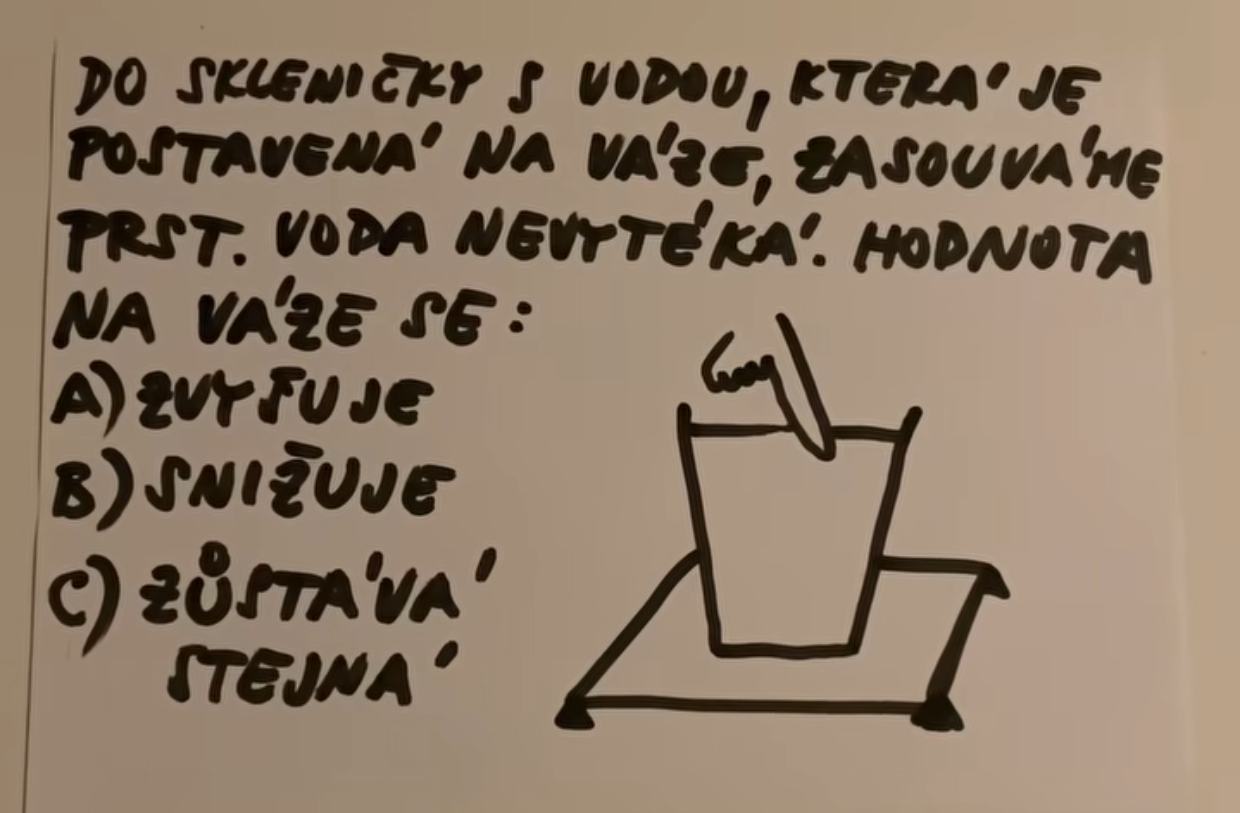 DO SKLENIČKY S VODOU, KTERÁ JE
POSTAVENÁ NA VÁZE, ZASOUVÁME
PRST. VODA NEVYTÉKÁ. HODNOTA
NA VÁZE SE:
A) ZVYŠUJE
B) SNIŽUJE
C) ZŮSTÁVÁ
STEJNÁ